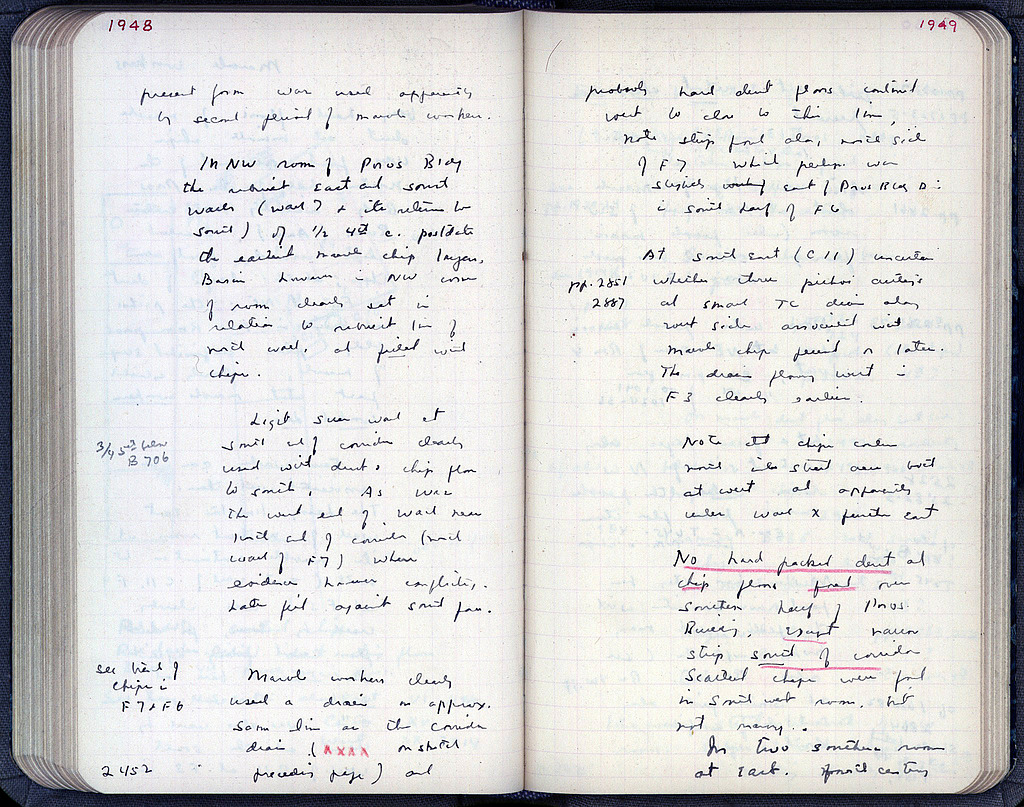 1948
present form was used apparently
by second period of marble workers.
In NW room of Poros Bldg
the rebuilt east and south
walls (wall 7 & its return to
south) of 1/2 4th c. postdate
the earliest marble chip layers.
Basin however in NW corner
of room clearly set in
relation to rebuilt line of
north wall, and filled with
chips.
3/4 5th below
B 706
Light screen wall at
south end of corridor clearly
used with dust & chip floor
to south. As was
the west end of wall near
south end of corridor (north
wall of F7) where
evidence however conflicting.
Late fill against south face.
see level of
chips in
F7 & F6
Marble workers clearly
used a drain on approx.
same line as the corridor
drain (xxxx on sketch
2452
preceding page) and
1949
probably hard dent floors continued
west to close to this line,
note strip found along north side
of F7 which perhaps was
slightly east of Poros Bldg D:
in south half of F6
At south east (C 11) uncertain
pp. 2851
2887
whether three pithoi cuttings
and small TC drain along
west side associated with
marble chip period or later.
The drain flowing west in
F3 clearly earlier.
Note chips continue
north into street area both
at west and apparently
under wall X further east
No hard packed dent and
chip floors found over
southern half of Poros
Building, except narrow
strip south of corridor
Scattered chips were found
in south west room, but
not many.
In two southern rooms
at East. fourth century